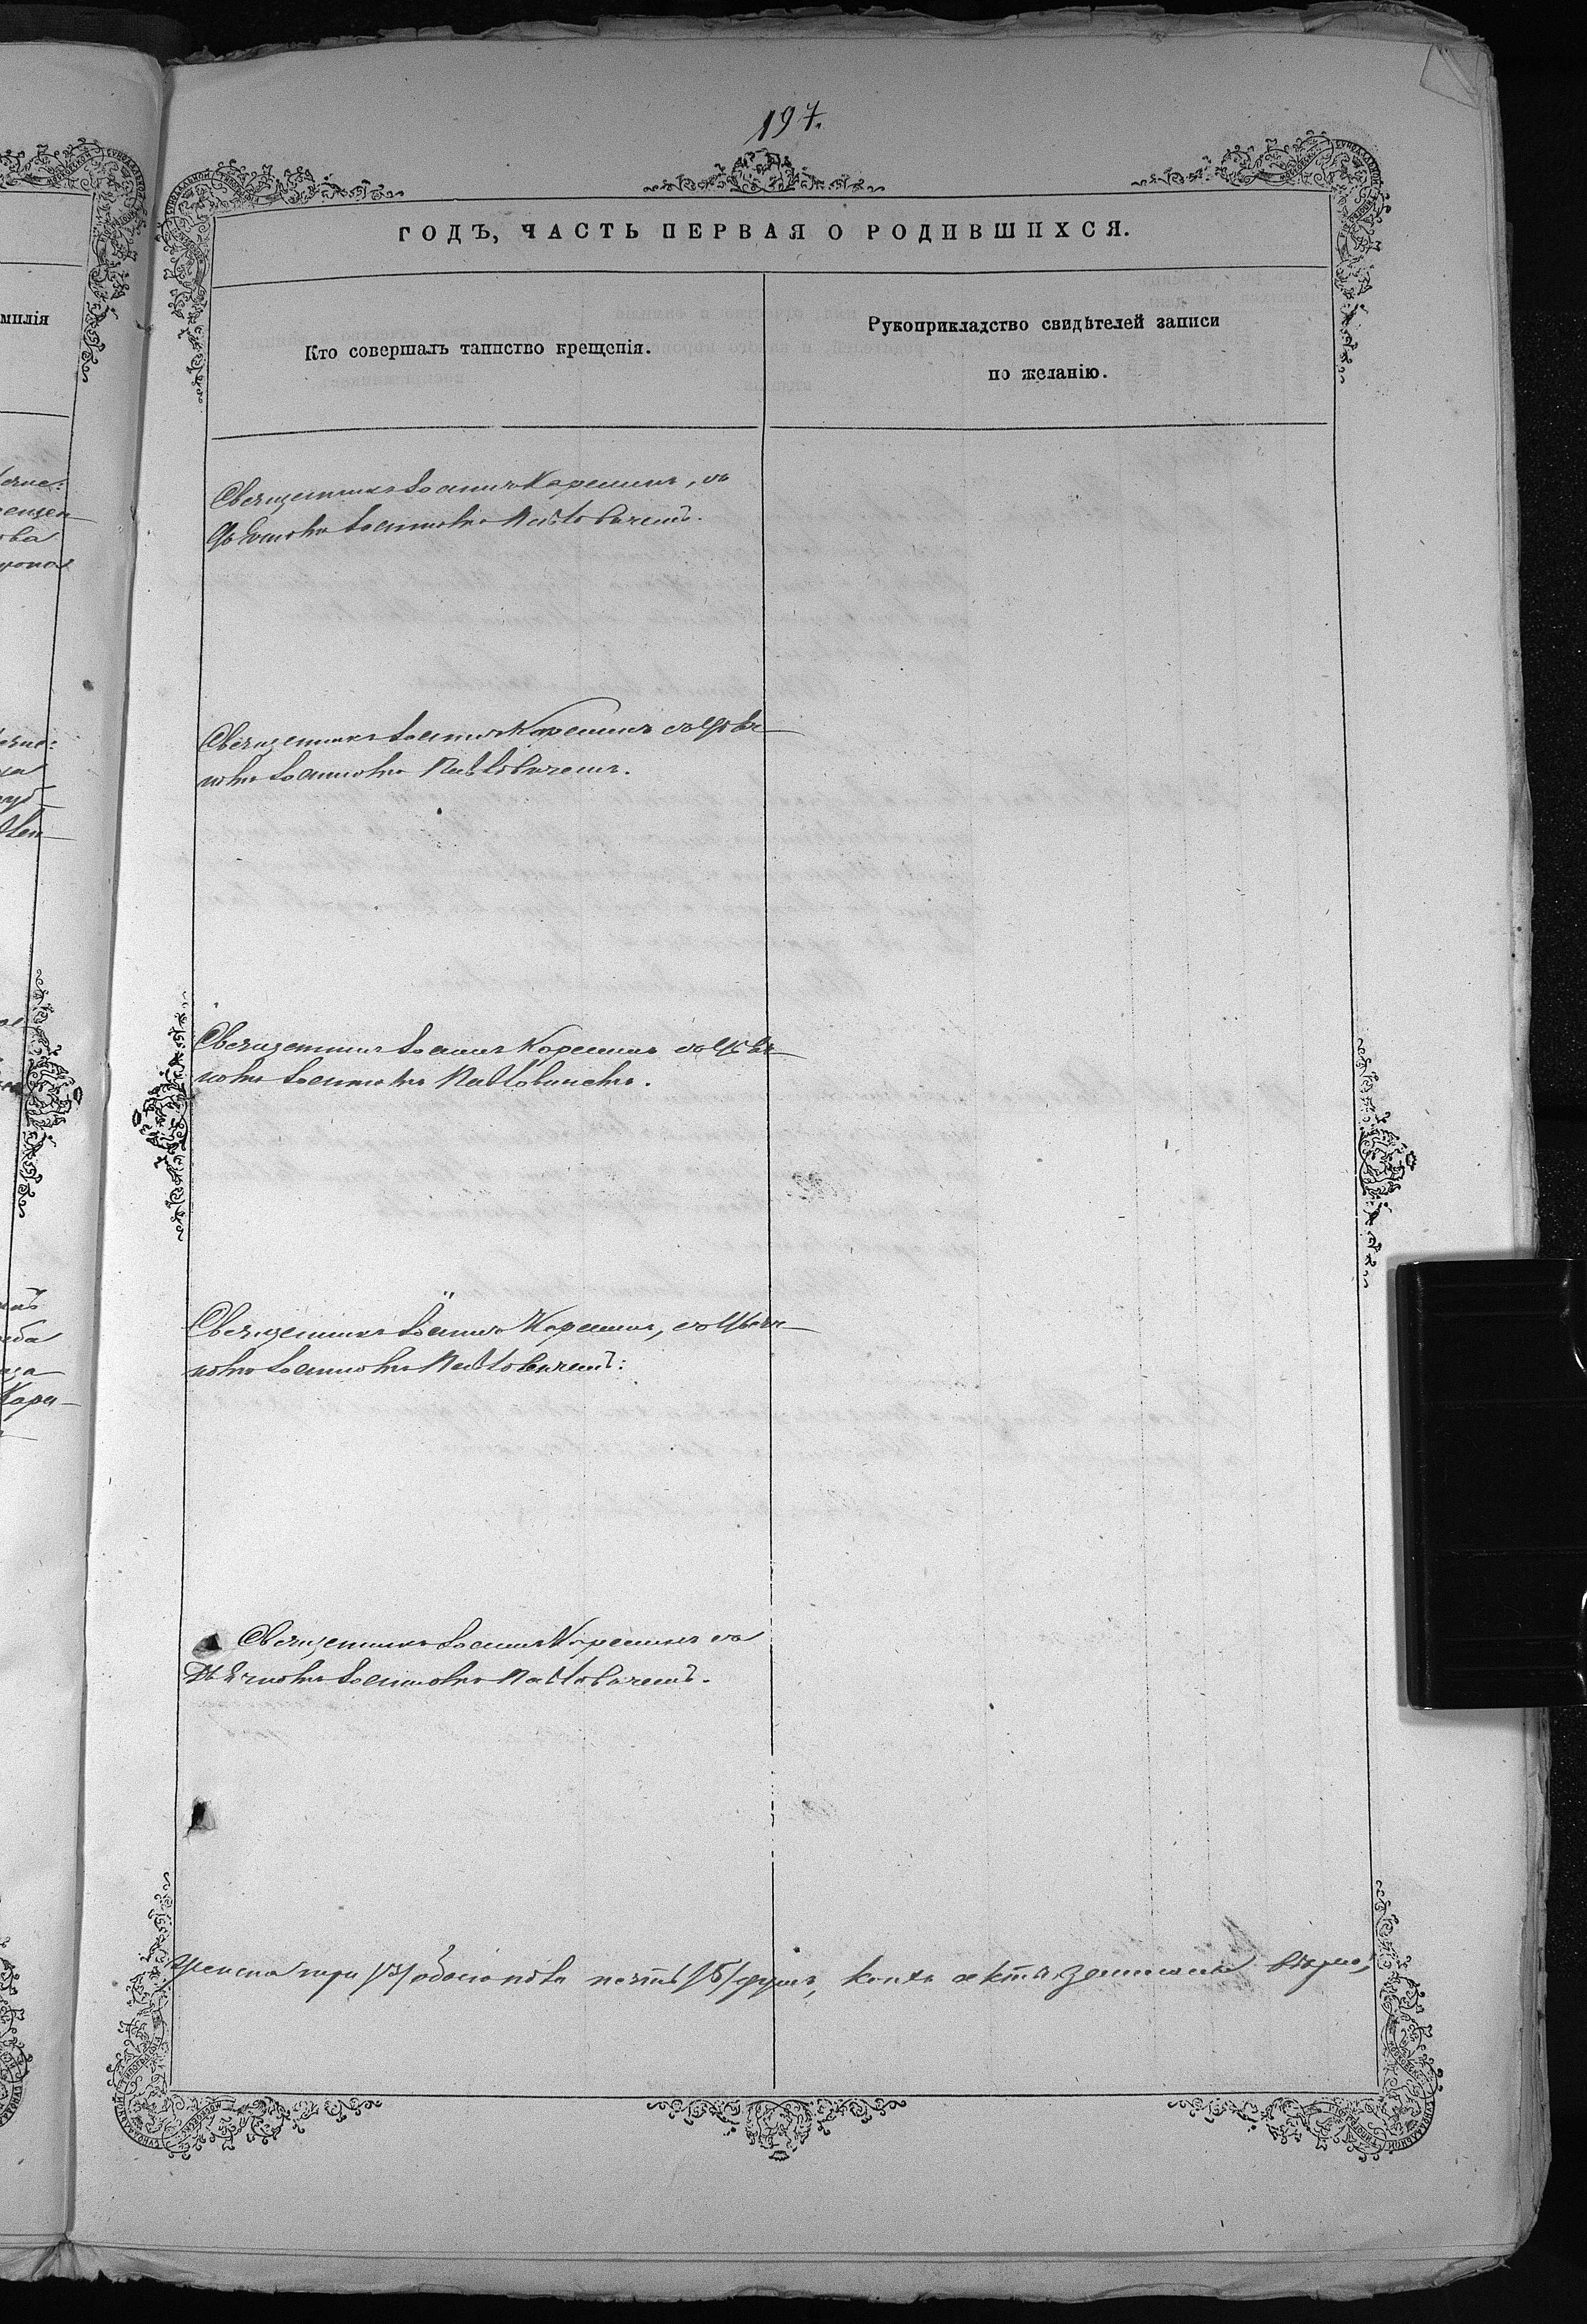 197.
ГОДЪ, ЧАСТЬ ПЕРВАЯ О РОДИВШИХСЯ.
милія
Кто совершалъ таинство крещенія.
Рукоприкладство свидѣтелей записи
по желанію.
Священникъ Іоаннъ Карешинъ, съ
Дьячкомъ Іоанномъ Павловичемъ.
Священникъ Іоаннъ Карешинъ съ Дьяч-
комъ Іоанномъ Павловичемъ.
Священникъ Іоаннъ Карешинъ съ Дьяч-
комъ Іоанномъ Павловичемъ.
Священникъ Іоаннъ Карешинъ, съ Дьяч-
комъ Іоанномъ Павловичемъ:
Священникъ Іоаннъ Карешинъ съ
Дьячкомъ Іоанномъ Павловичемъ.
женска три /3/ обоего пола пять /5/ душъ, коихъ акты записаны вѣрно,